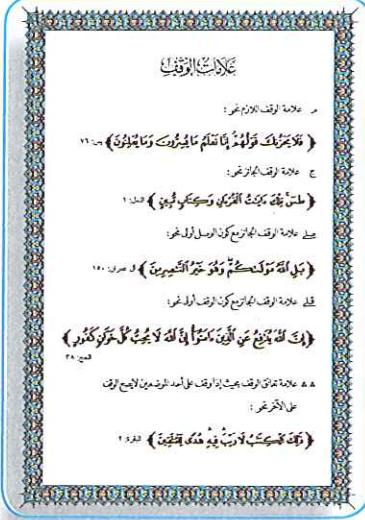 علامات الوقف
م علامة الوقف اللازم نحو :
﴿ فَلَا يَحْزُنكَ قَوْلُهُمْ إِنَّا نَعْلَمُ مَا يُسِرُّونَ وَمَا يُعْلِنُونَ ﴾ يس: ٧٦
ج علامة الوقف الجائز نحو :
﴿ طسٓ تِلْكَ ءَايَٰتُ ٱلْقُرْءَانِ وَكِتَابٍ مُّبِينٍ ﴾ النمل: ١
صلے علامة الوقف الجائز مع كون الوصل أولى نحو:
﴿ بَلِ ٱللَّهُ مَوْلَىٰكُمْ وَهُوَ خَيْرُ ٱلنَّٰصِرِينَ ﴾ آل عمران: ١٥٠
قلے علامة الوقف الجائز مع كون الوقف أولى نحو:
﴿ إِنَّ ٱللَّهَ يُدَٰفِعُ عَنِ ٱلَّذِينَ ءَامَنُوٓا۟ إِنَّ ٱللَّهَ لَا يُحِبُّ كُلَّ خَوَّانٍ كَفُورٍ ﴾
الحج: ٣٨
∴ ∴ علامة تعانق الوقف بحيث إذا وقف على أحد الموضعين لا يصح الوقف
على الآخر نحو :
﴿ ذَٰلِكَ ٱلْكِتَٰبُ لَا رَيْبَ فِيهِ هُدًى لِّلْمُتَّقِينَ ﴾ البقرة: ٢